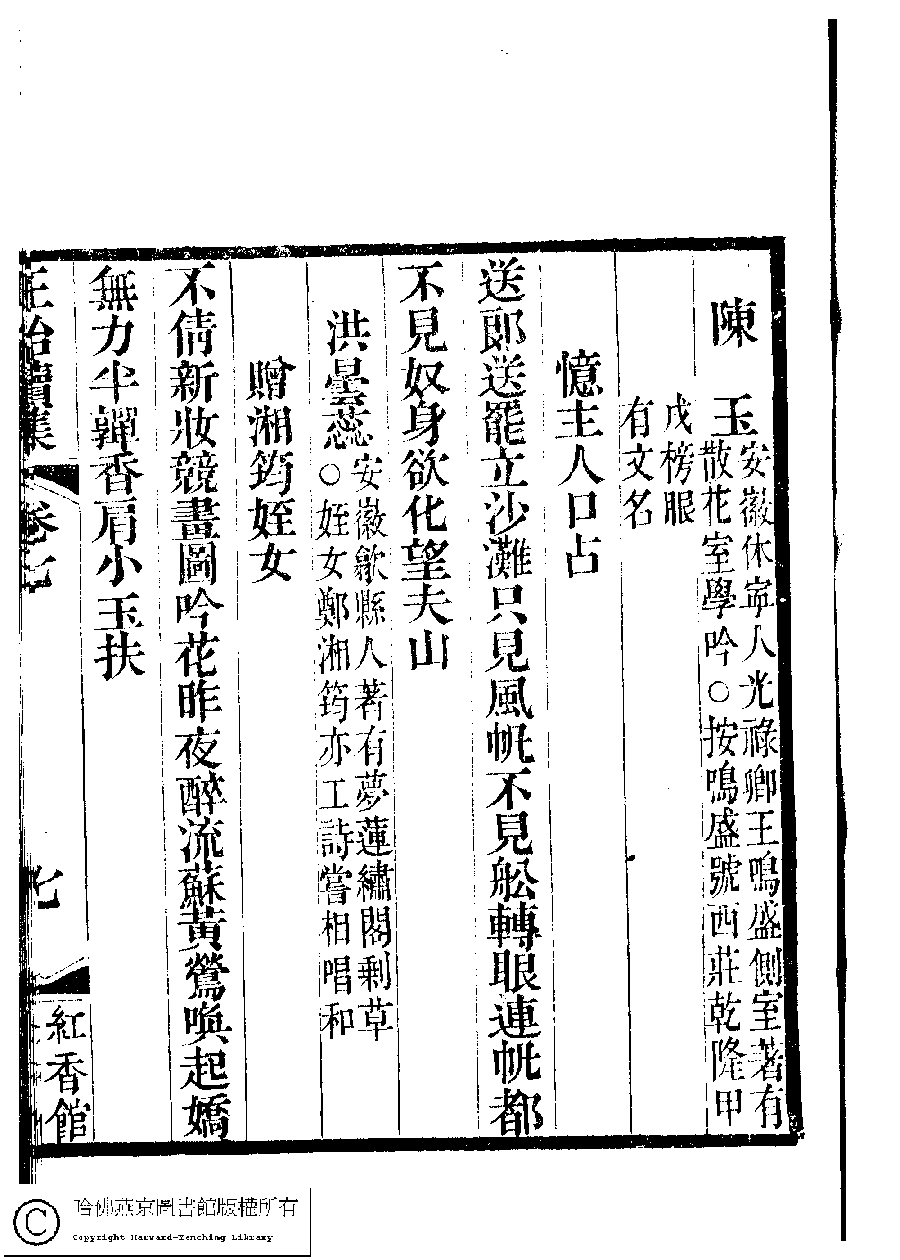 陳玉安徽休寧人光祿卿王鳴盛側室著有
散花室學吟○按鳴盛號西莊乾隆甲
戌榜眼
有文名
憶主人口占
送郎送罷立沙灘只見風帆不見舩轉眼連帆都
不見奴身欲化望夫山
洪曇蕊安徽歙縣人著有夢蓮繡閣剩草
○姪女鄭湘筠亦工詩嘗相唱和
贈湘筠姪女
不倩新妝競畫圖吟花昨夜醉流蘇黃鶯喚起嬌
無力半嚲香肩小玉扶
正始續集 卷七 七 紅香館
哈佛燕京圖書館版權所有
Copyright Harvard-Yenching Library